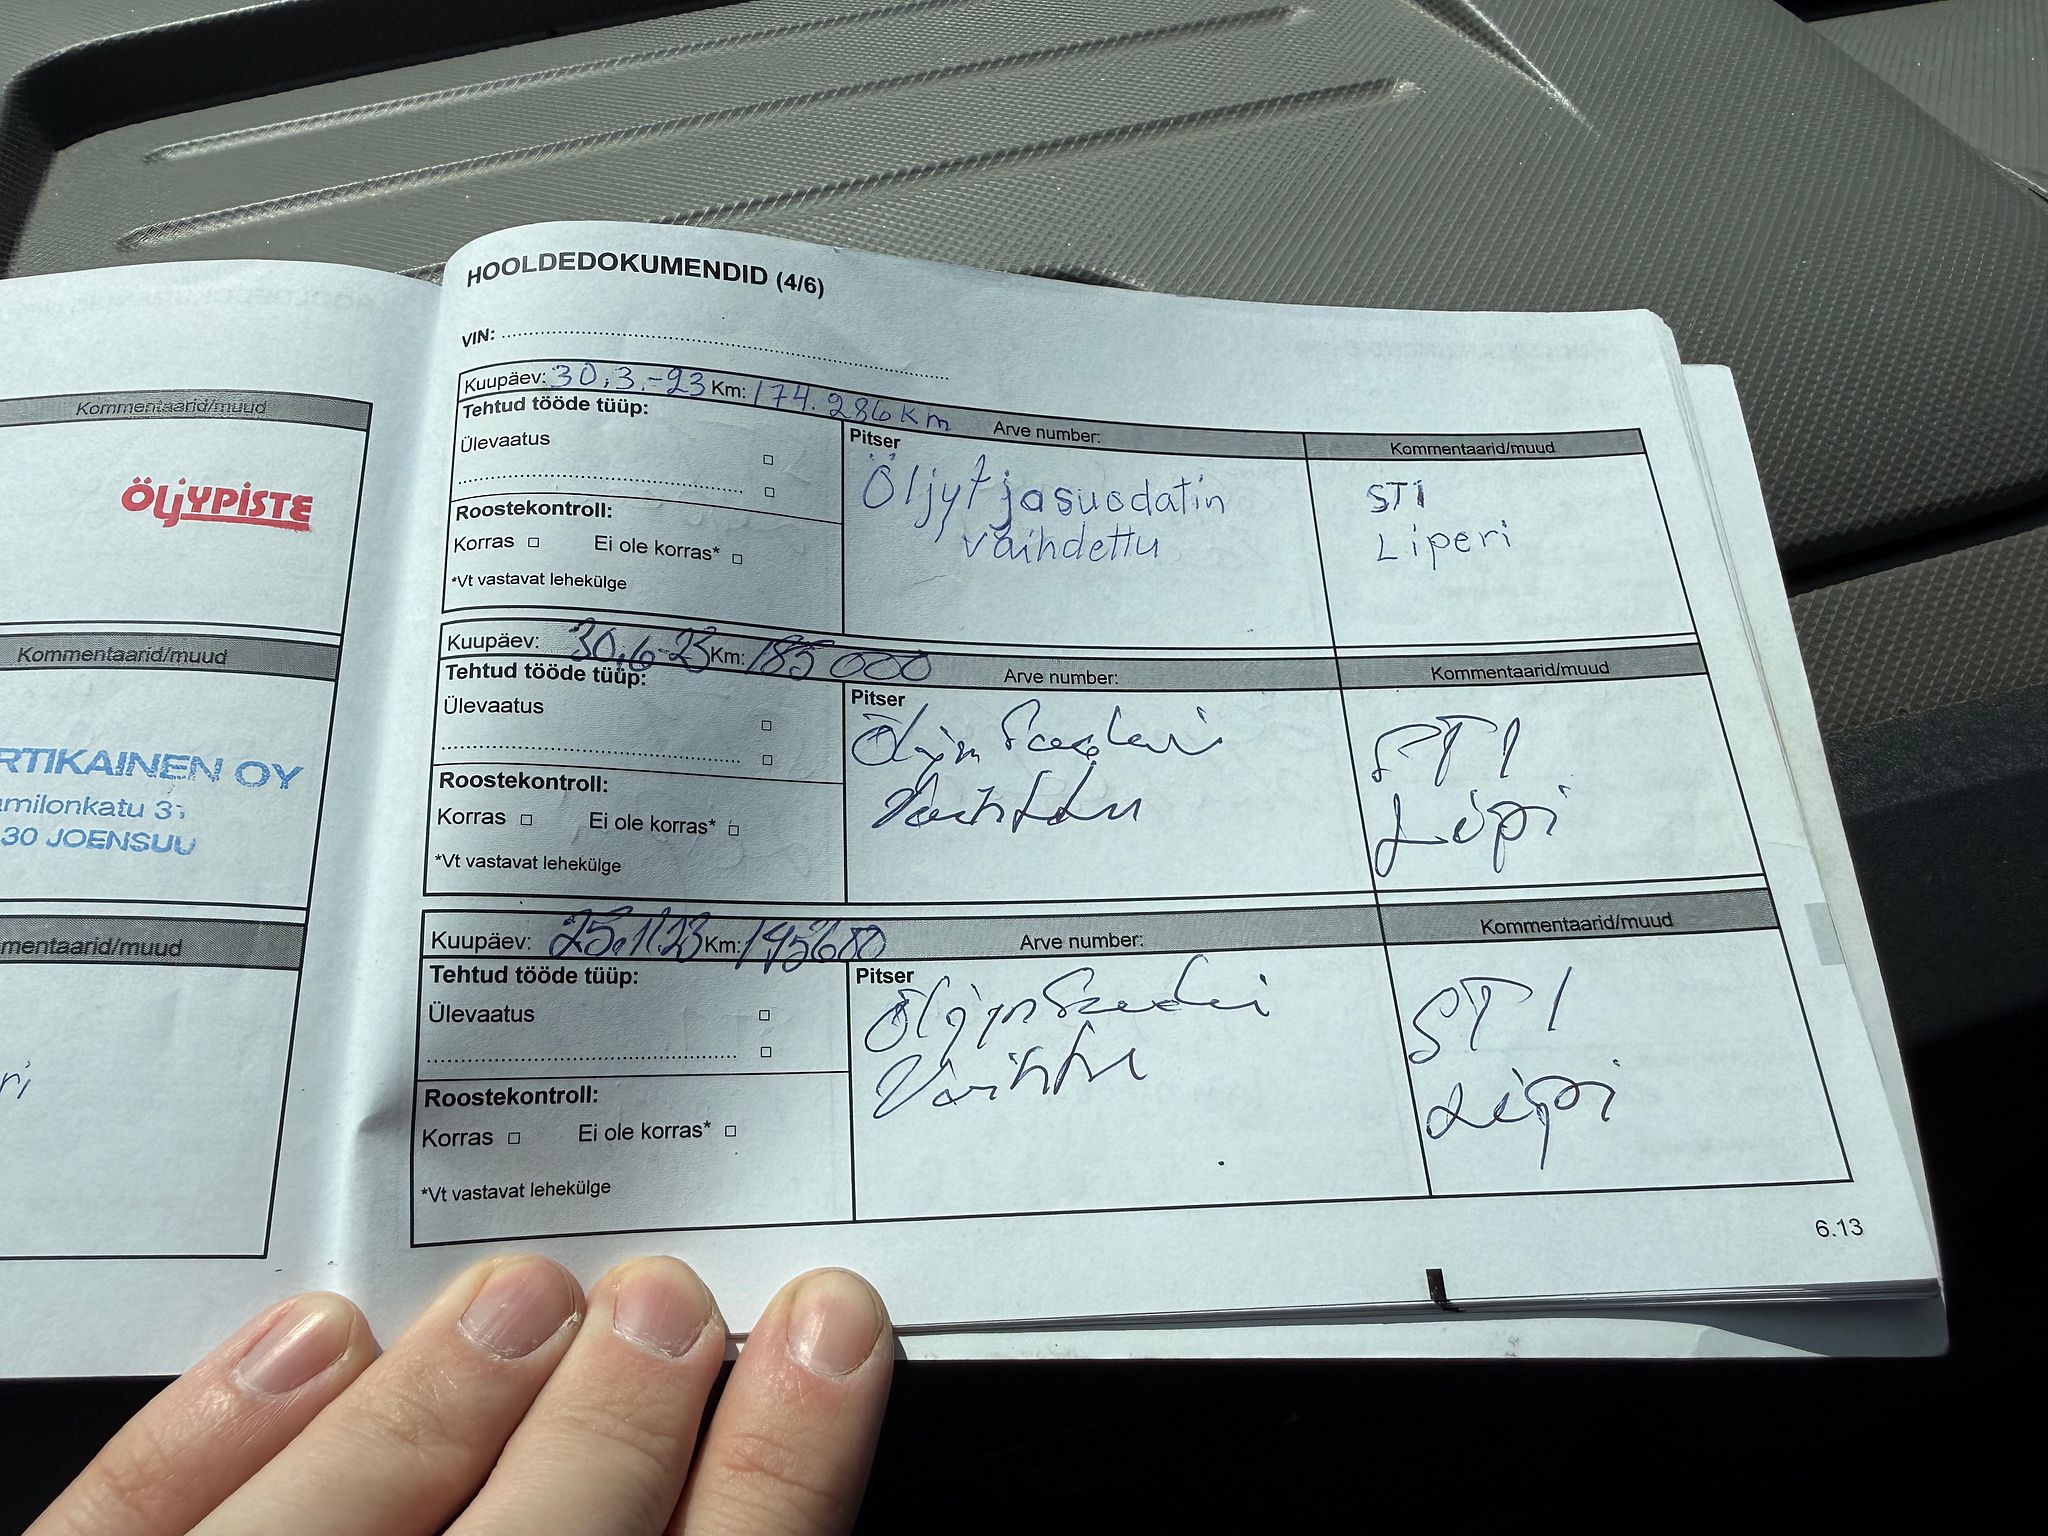 Kommentaarid/muud
ÖLJYPISTE
Kommentaarid/muud
RTIKAINEN OY
milonkatu 3
30 JOENSUU
mentaarid/muud
ri
HOOLDEDOKUMENDID (4/6)
VIN:
Kuupäev: 30.3.-23 Km: 174.286 km
Arve number:
Kommentaarid/muud
Tehtud tööde tüüp:
Ülevaatus
Roostekontroll:
Korras Ei ole korras*
*Vt vastavat lehekülge
Pitser
Öljyt ja suodatin
vaihdettu
ST1
Liperi
Kuupäev: 30.6-23 Km: 185000
Arve number:
Kommentaarid/muud
Tehtud tööde tüüp:
Ülevaatus
Roostekontroll:
Korras Ei ole korras*
*Vt vastavat lehekülge
Pitser
ST1
Kuupäev: 25.11.23 Km: 195680
Arve number:
Kommentaarid/muud
Tehtud tööde tüüp:
Ülevaatus
Roostekontroll:
Korras Ei ole korras*
*Vt vastavat lehekülge
Pitser
ST1
6.13